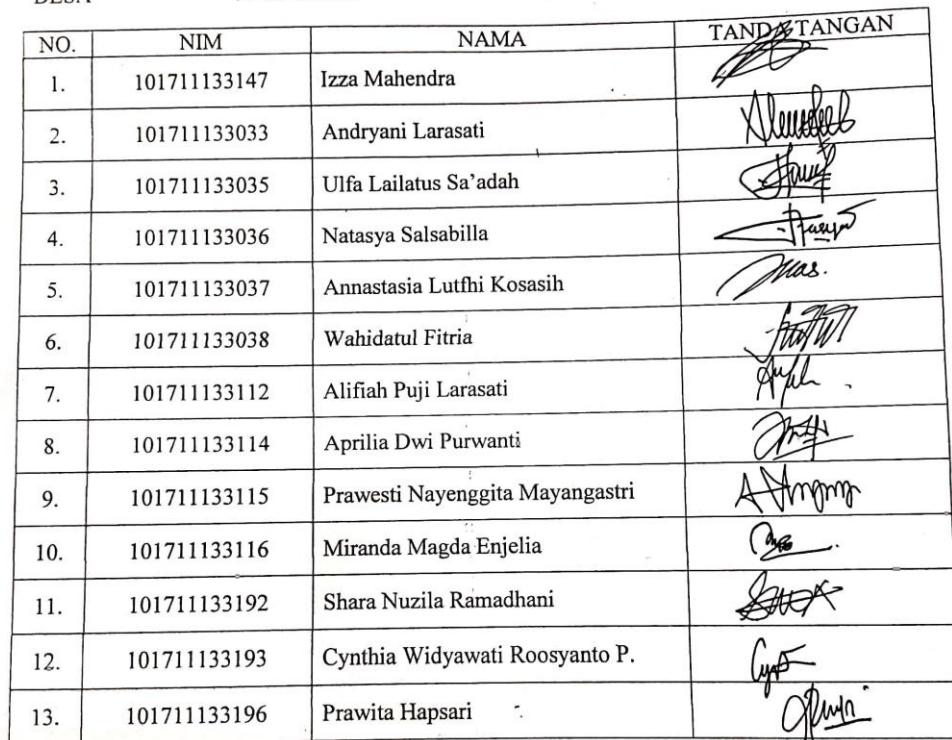 DESA
NO. NIM NAMA TANDA TANGAN
1. 101711133147 Izza Mahendra
2. 101711133033 Andryani Larasati
3. 101711133035 Ulfa Lailatus Sa’adah
4. 101711133036 Natasya Salsabilla
5. 101711133037 Annastasia Lutfhi Kosasih
6. 101711133038 Wahidatul Fitria
7. 101711133112 Alifiah Puji Larasati
8. 101711133114 Aprilia Dwi Purwanti
9. 101711133115 Prawesti Nayenggita Mayangastri
10. 101711133116 Miranda Magda Enjelia
11. 101711133192 Shara Nuzila Ramadhani
12. 101711133193 Cynthia Widyawati Roosyanto P.
13. 101711133196 Prawita Hapsari